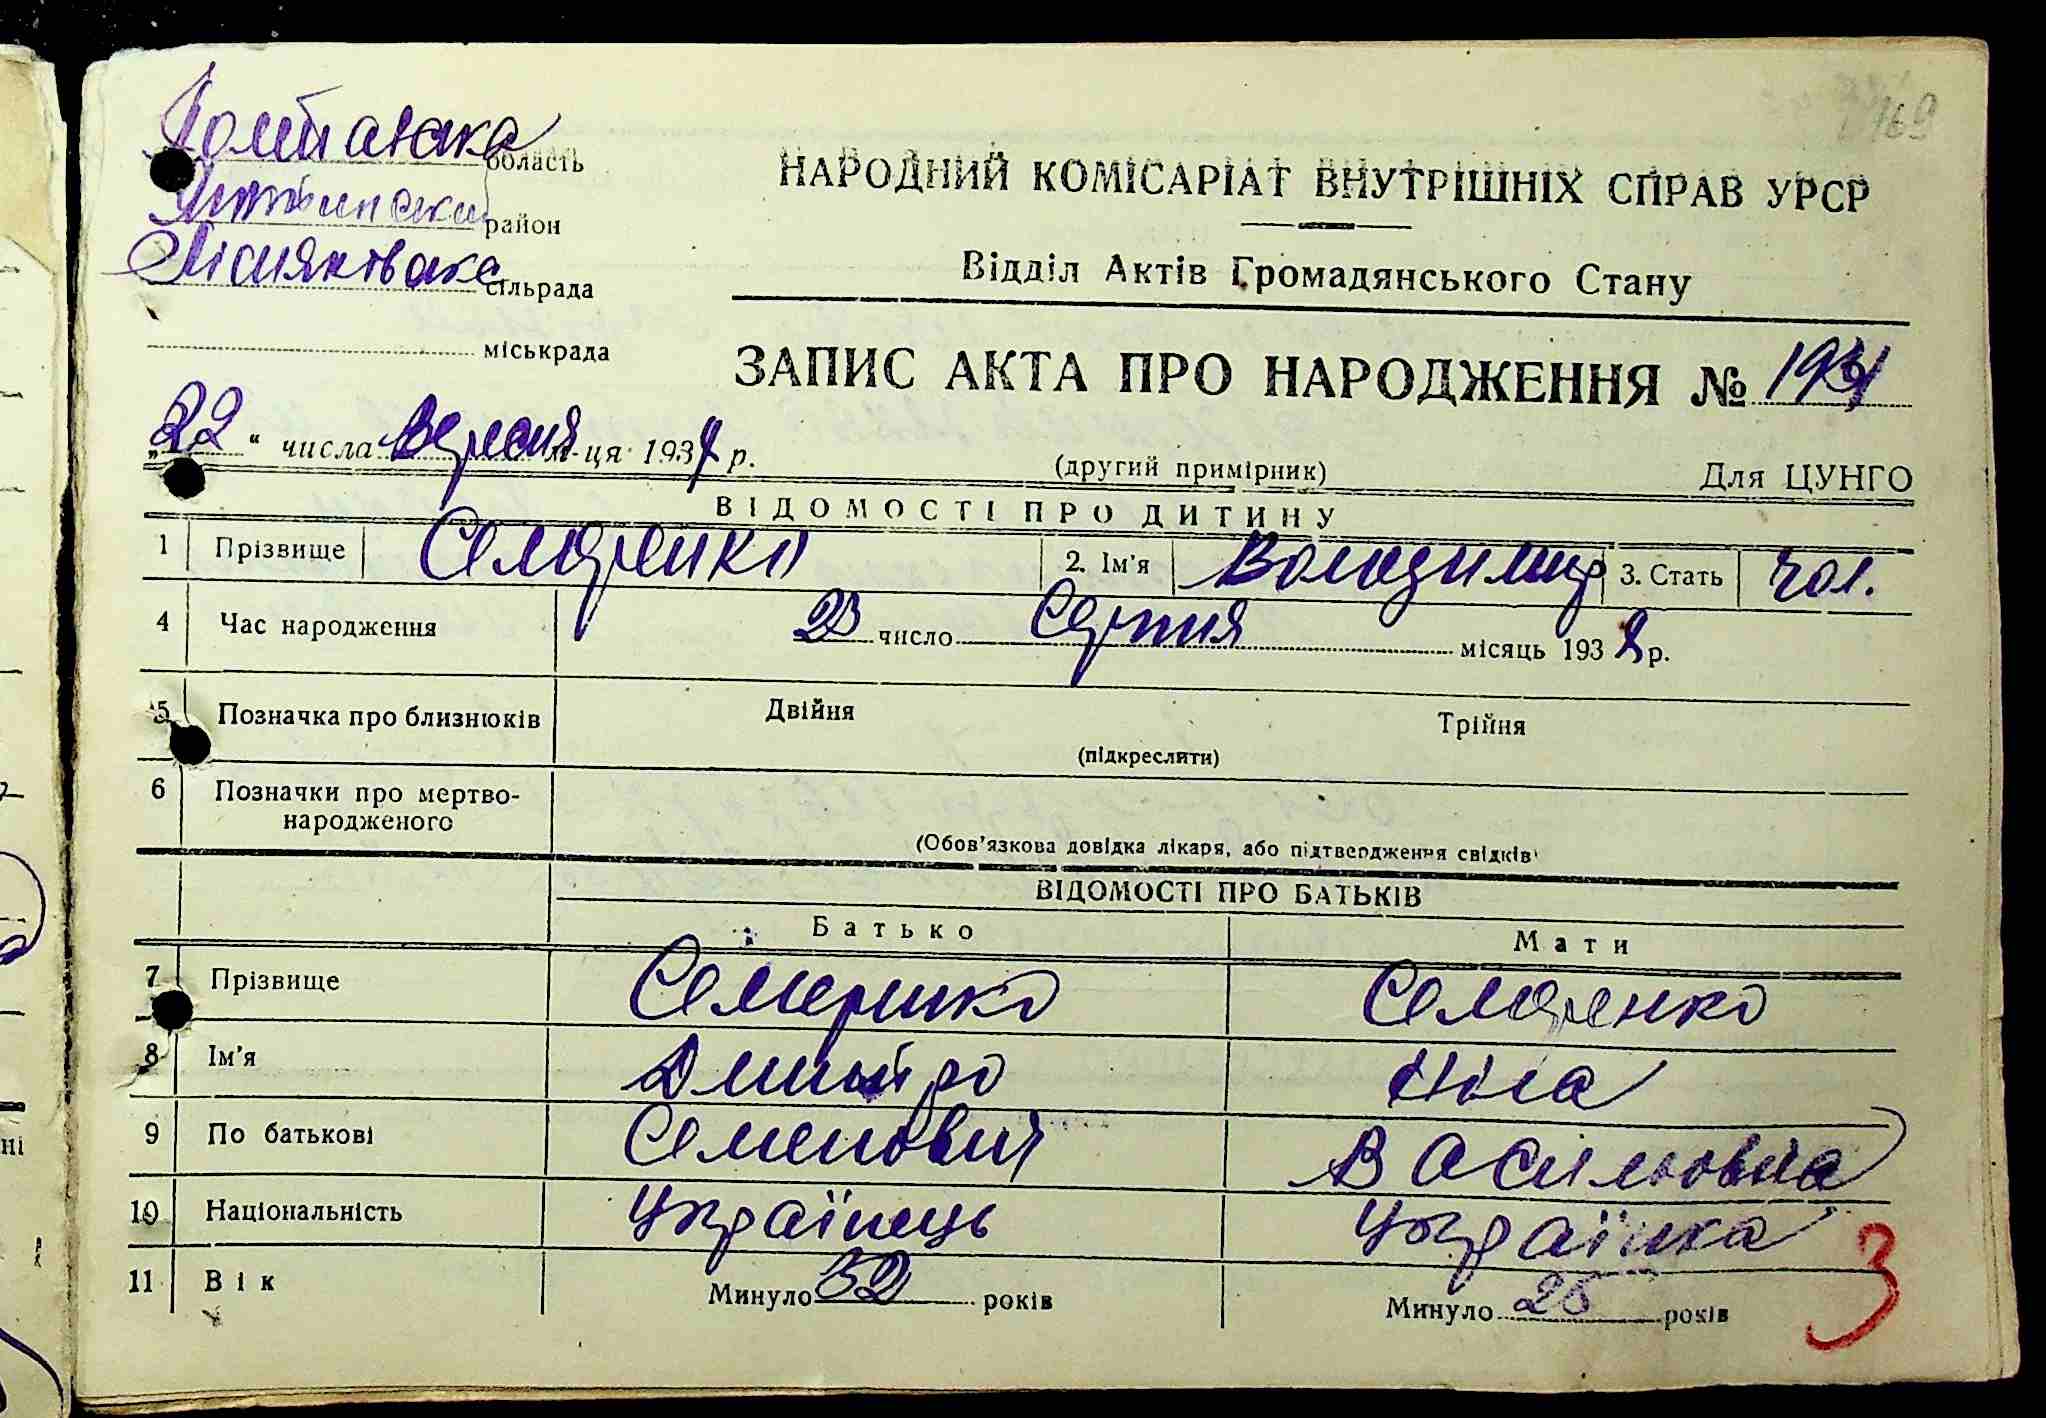 169
Полтавська область
НАРОДНИЙ КОМІСАРІАТ ВНУТРІШНІХ СПРАВ УРСР
район
Відділ Актів Громадянського Стану
сільрада
міськрада
ЗАПИС АКТА ПРО НАРОДЖЕННЯ №
„22“ числа Вересня м-ця 193 р.
(другий примірник)
Для ЦУНГО
ВІДОМОСТІ ПРО ДИТИНУ
1 Прізвище Семеренко 2. Ім'я Володимир 3. Стать чол.
4 Час народження 23 число Серпня місяць 1938 р.
5 Позначка про близнюків Двійня Трійня
(підкреслити)
6 Позначки про мертво-
народженого
(Обов'язкова довідка лікаря, або підтвердження свідків)
ВІДОМОСТІ ПРО БАТЬКІВ
Батько Мати
7 Прізвище Семеренко Семеренко
8 Ім'я Дмитро Ніна
9 По батькові Семенович Василювна
10 Національність Українець Українка
11 Вік Минуло 32 років Минуло років
3